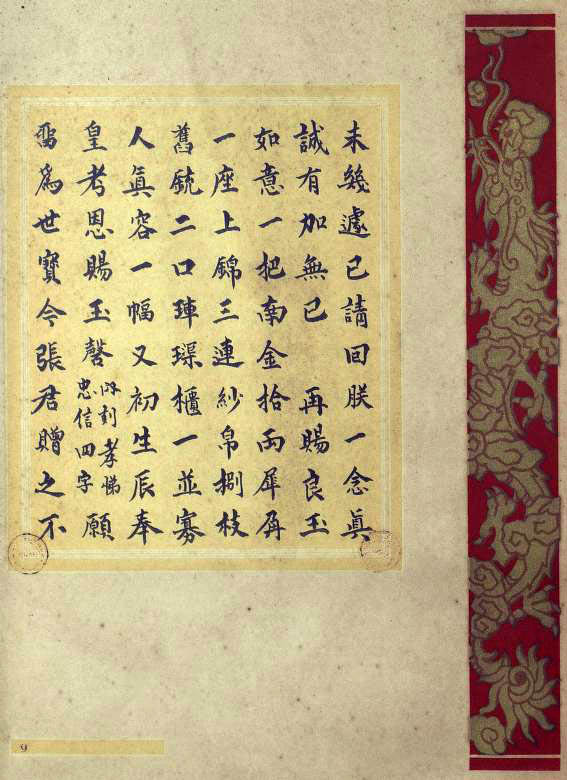 未幾遽已請回朕一念眞
誠有加無已 再賜良玉
如意一把南金拾両犀角
一座上錦三連紗帛捌枝
舊銃二口琕璖櫃一並寡
人眞容一幅又初生辰奉
皇考恩賜玉磬所刻孝悌忠信四字願
畱爲世寶今張君贈之不
9